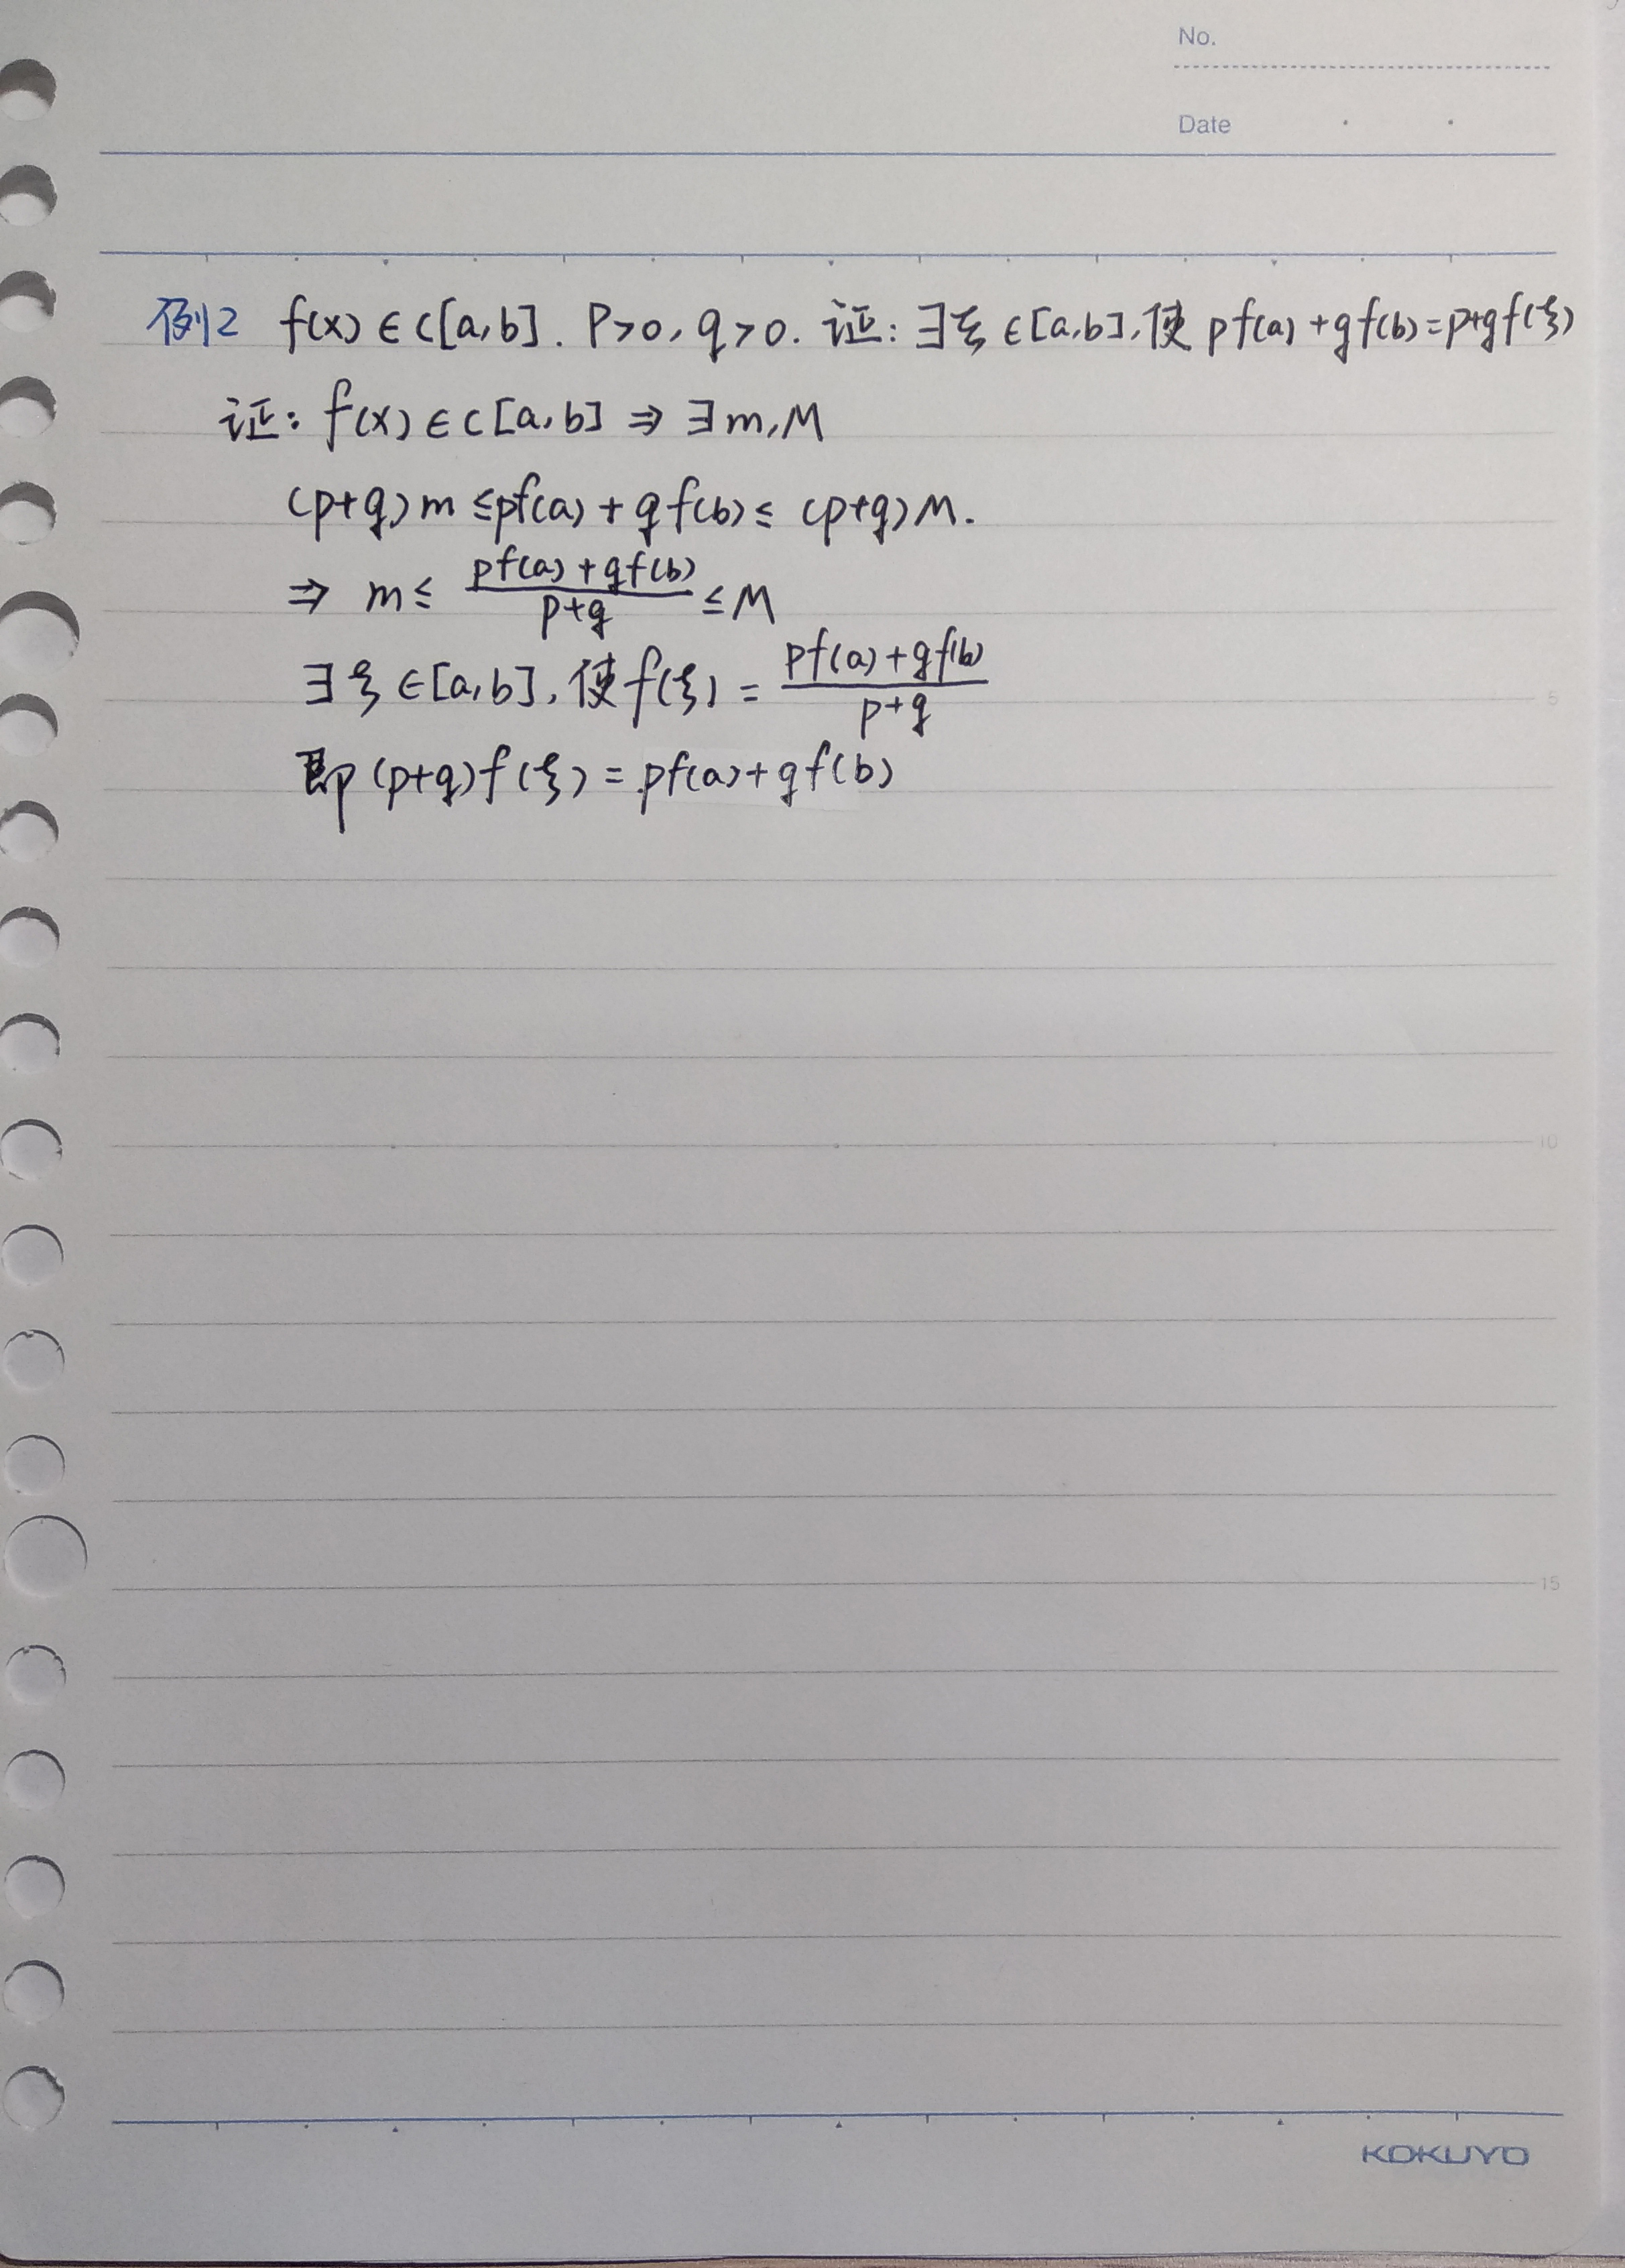 No.
Date
例2 f(x)∈C[a,b]. P>0, q>0. 证: ∃ξ∈[a,b], 使 pf(a)+qf(b)=p+qf(ξ)
证: f(x)∈C[a,b] ⇒ ∃m,M
(p+q)m ≤pf(a)+qf(b)≤ (p+q)M.
⇒ m≤ \frac{pf(a)+qf(b)}{p+q} ≤M
∃ξ∈[a,b], 使f(ξ) = \frac{pf(a)+qf(b)}{p+q}
5
即(p+q)f(ξ)=pf(a)+qf(b)
10
15
KOKUYO